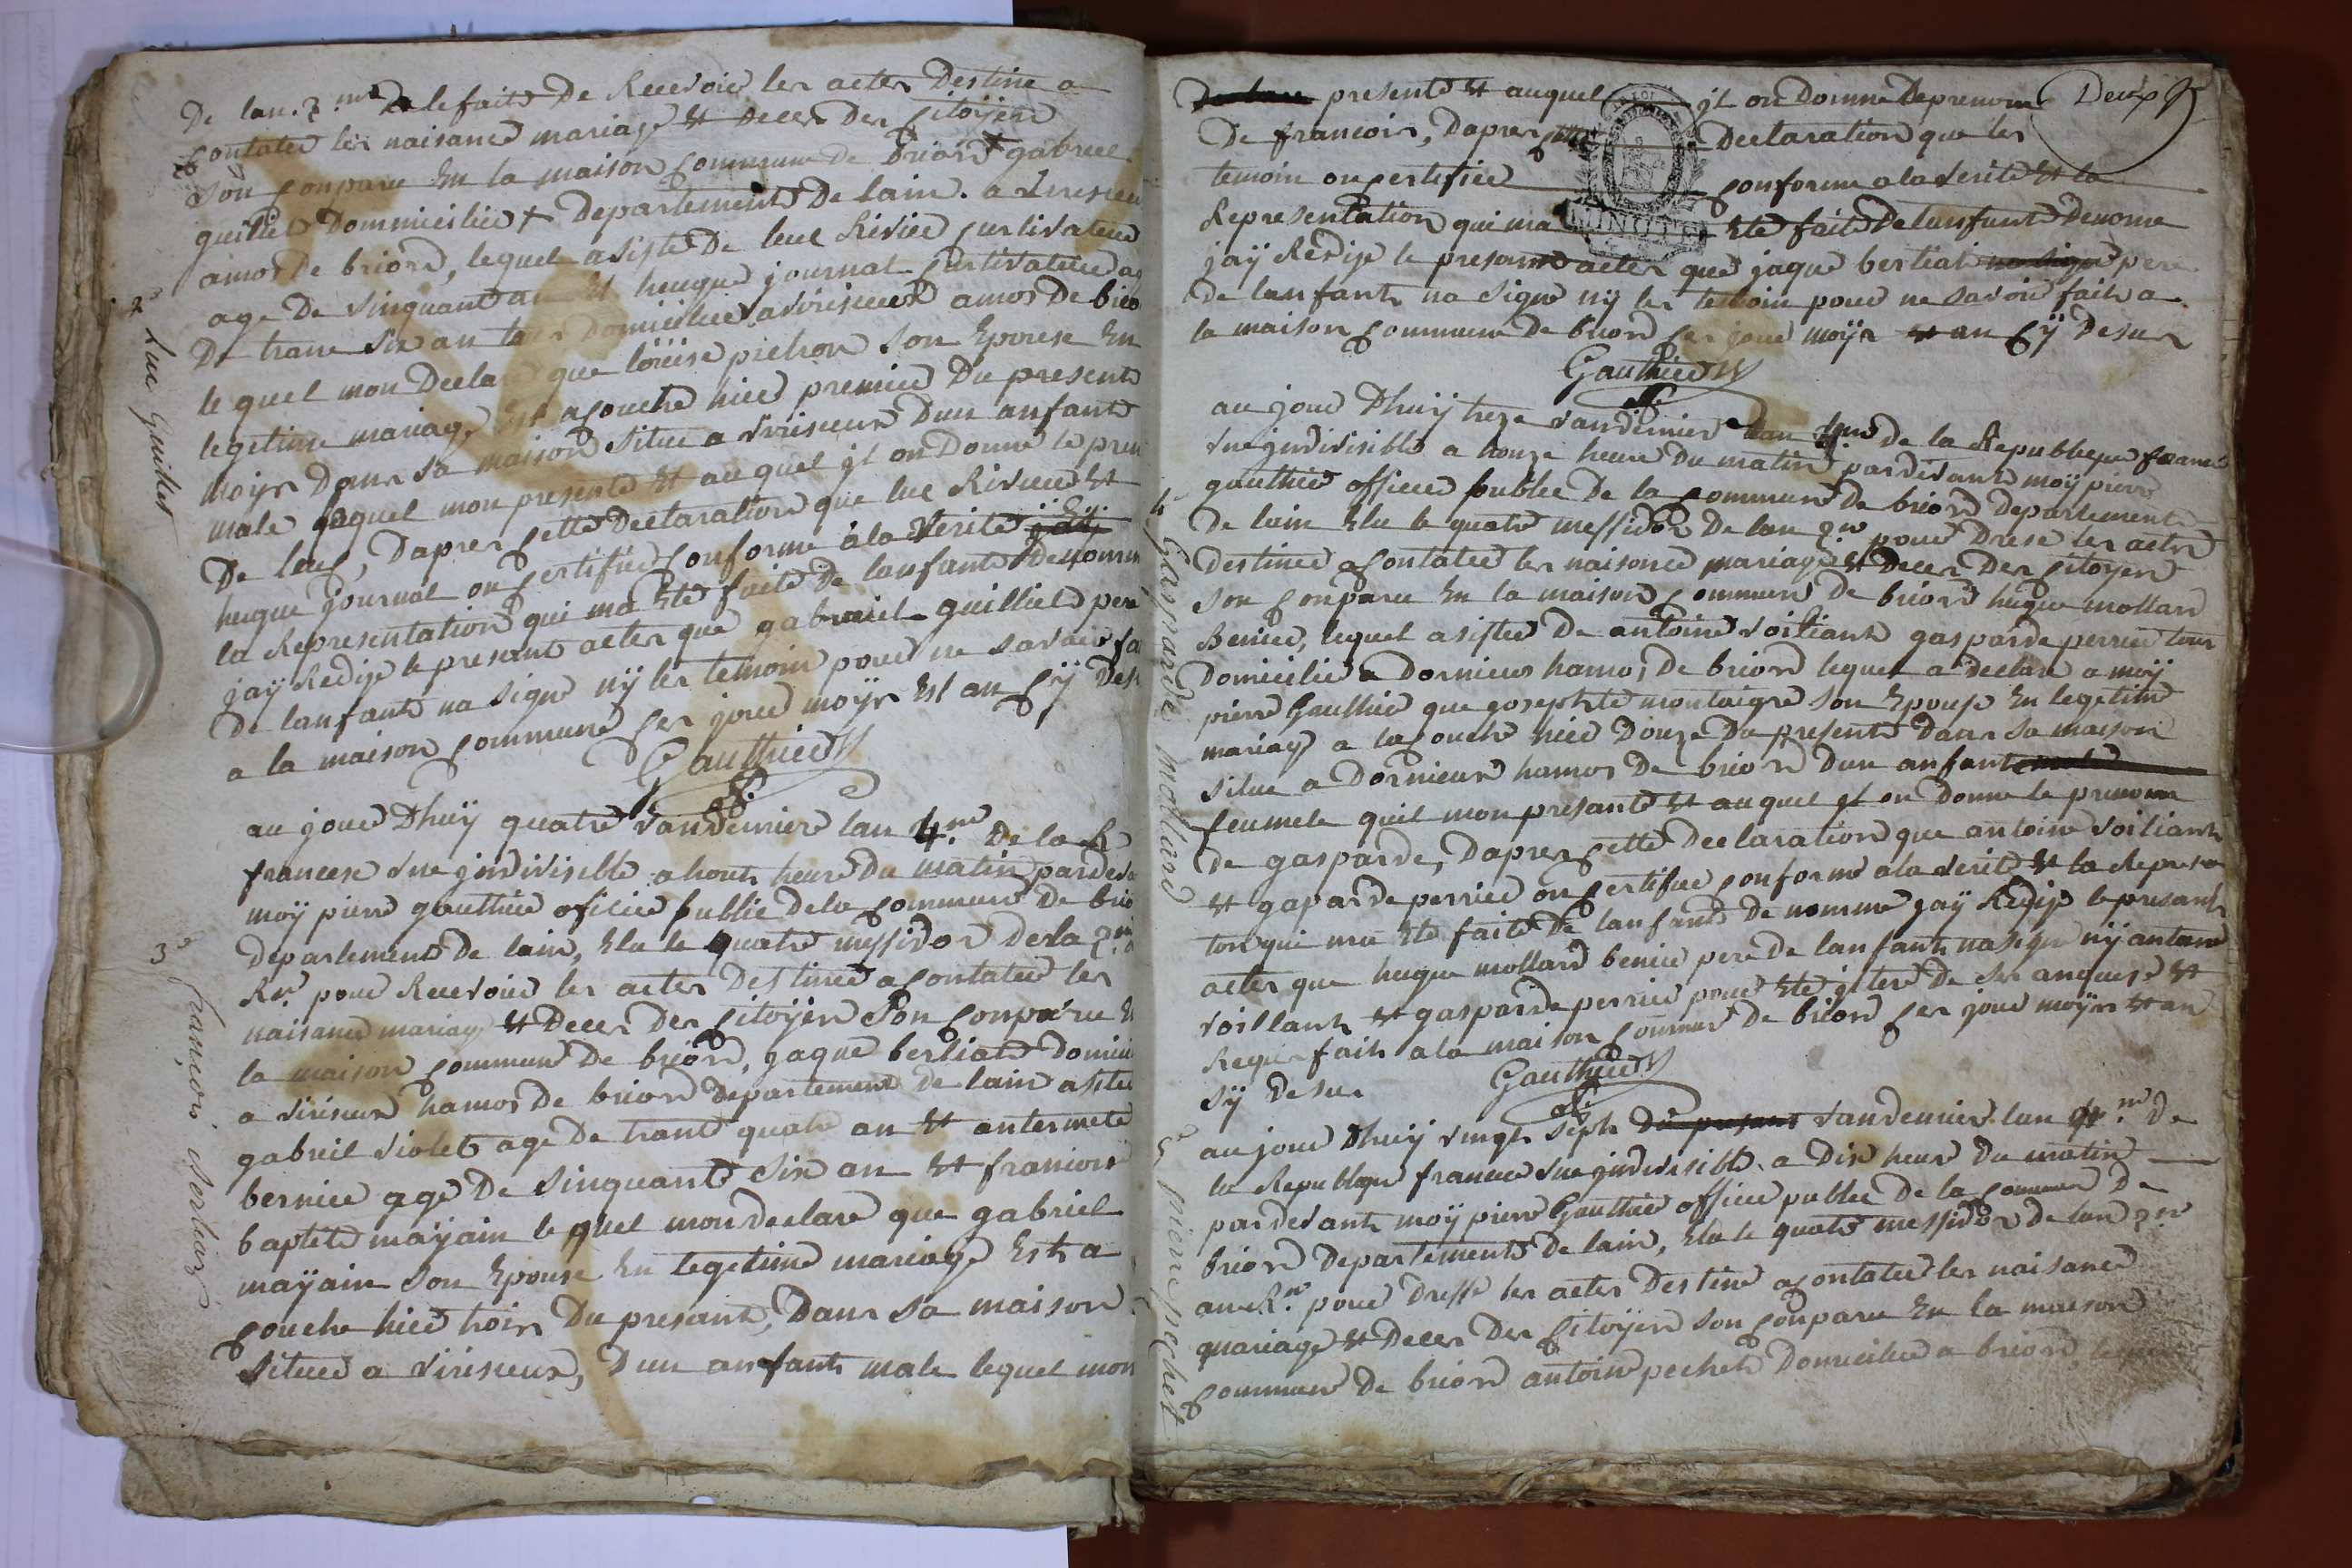 De lan. 3.me le faite De Recevoir les actes Destine a
Contater les naisance mariage et Deces Des Citoyen
Son Conparu En la maison Commune de Briord gabriel
quilliet Dommicilié + Departement De lain. a
amos de briord, lequel asisté De luc Rivier Cultivateur
age De sinquante an et hugue journal Cultivateur
De trane six an tous Domicilié a virisieux amos De brio
le quel mon Declare que loüise pichon Son Epouse En
legetime mariage Est acouché hier premier Du presente
moys Dans sa maison situe a virisieux Dun anfante
male lequel mon presenté et auquel jl on Donné le pren
De luc, Dapres Cette Declaration que luc Rivier et
hugue journal on Certifié Conforme a la verité
la Representation qui ma Eté faite De lanfante Denomm
jaÿ Redige le presant acter que gabriel quilliet pere
De lanfante na signe nÿ les temoin pour ne savoir fa
a la maison Commune Ces jour moÿs Et an Cÿ Des
Gauthier
2
Luc Guillet
au jour Dhuÿ quatre vandemier lan 4.me De la R
francese une jndivisible a honts heure Du matin pardeva
moÿ pierre gauthier oficier public De la Commune De brio
departement De lain, Elu le quatre messidor De la 3me
Rne pour Recevoir les actes Destiné a Contater les
naisance mariage et Deces Des Citoyen Son Conparu E
la maison Commune De briord, jaque berliat Domici
a virisieux hamos De briord departement De lain asiste
gabriel violet age De trante quatre an et antermete
bernier age De sinquante Six an et francois
baptete maÿain le quel mon declare que gabriel
maÿain Son Epouse En legetime mariage Est a
Couche hier trois Du presant, Dans sa maison
Situer a virisieux, Dun anfants male lequel mon
3
francois berliat
presenté et auquel jl on Donne le prenom
De francois, Dapres Cette Declaration que les
temoin on Certifié Conforme a la verité et la
Representation qui ma Eté faite De lanfante Denome
jaÿ Redige le presant acter que jaque berliat pere
De lanfants na signe nÿ les temoin pour ne savoir faits a
la maison Commune De briord Ces jour moÿs et an Cÿ Desus
Gauthier
Deux
MINUTE
au jour Dhuÿ treze vandemier lan 4me de la Republique france
une jndivisible a honze heure Du matin pardevant moÿ pierre
gauthier officier publec De la Commune de briord departement
De lain Elu le quatre messidor De lan 3me pour Drese les acter
Destiner a Contater les naisance mariage et Deces Des Citoyen
Son Conparu En la maison Commune De briord hugue mollard
Benier, lequel asister De antoine voiliant gasparde perrier tous
Domicilié a Dornieux hamos De briord lequel a declare a moÿ
pierre Gauthier que gosephte montaigre Son Epouse En legetime
mariage a lacouche hier Douze Du presente Dans Sa maison
Situe a Dornieux hamos De briord Dun anfant
feumele quil mon presante et auquel jl on Donne le prenom
de gasparde, Dapres Cette Declaration que antoine voiliants
et gaparde perrier on Certifier Conforme a la verité et la Represa
tion qui ma Eté faite De lanfants De nomme jaÿ Redije le presants
acter que hugue mollard benier pere De lanfants na signe nÿ antoine
voillants et gasparde perrier pour Eté jtere De Ses anquere et
Requis faits a la maison Commune De briord Ces jour moÿs et an
Sÿ Desus
Gauthier
4
Gasparde mollard
au jour Dhuÿ vingts septs vandemier lan 4.me De
la Republique francese une jndivisible a Dix heure Du matin
pardevants moÿ pierre Gauthier officier publec De la Commune De
briord Departement De lain, Elu le quatre messidor de lan 3me
pour Dresse les acter Destine a Contater les naisance
mariage et Deces Des Citoyen Son Conparu En la maison
Commune De briord antoine pechets Domicilier a briord lequel
5
pierre pechet